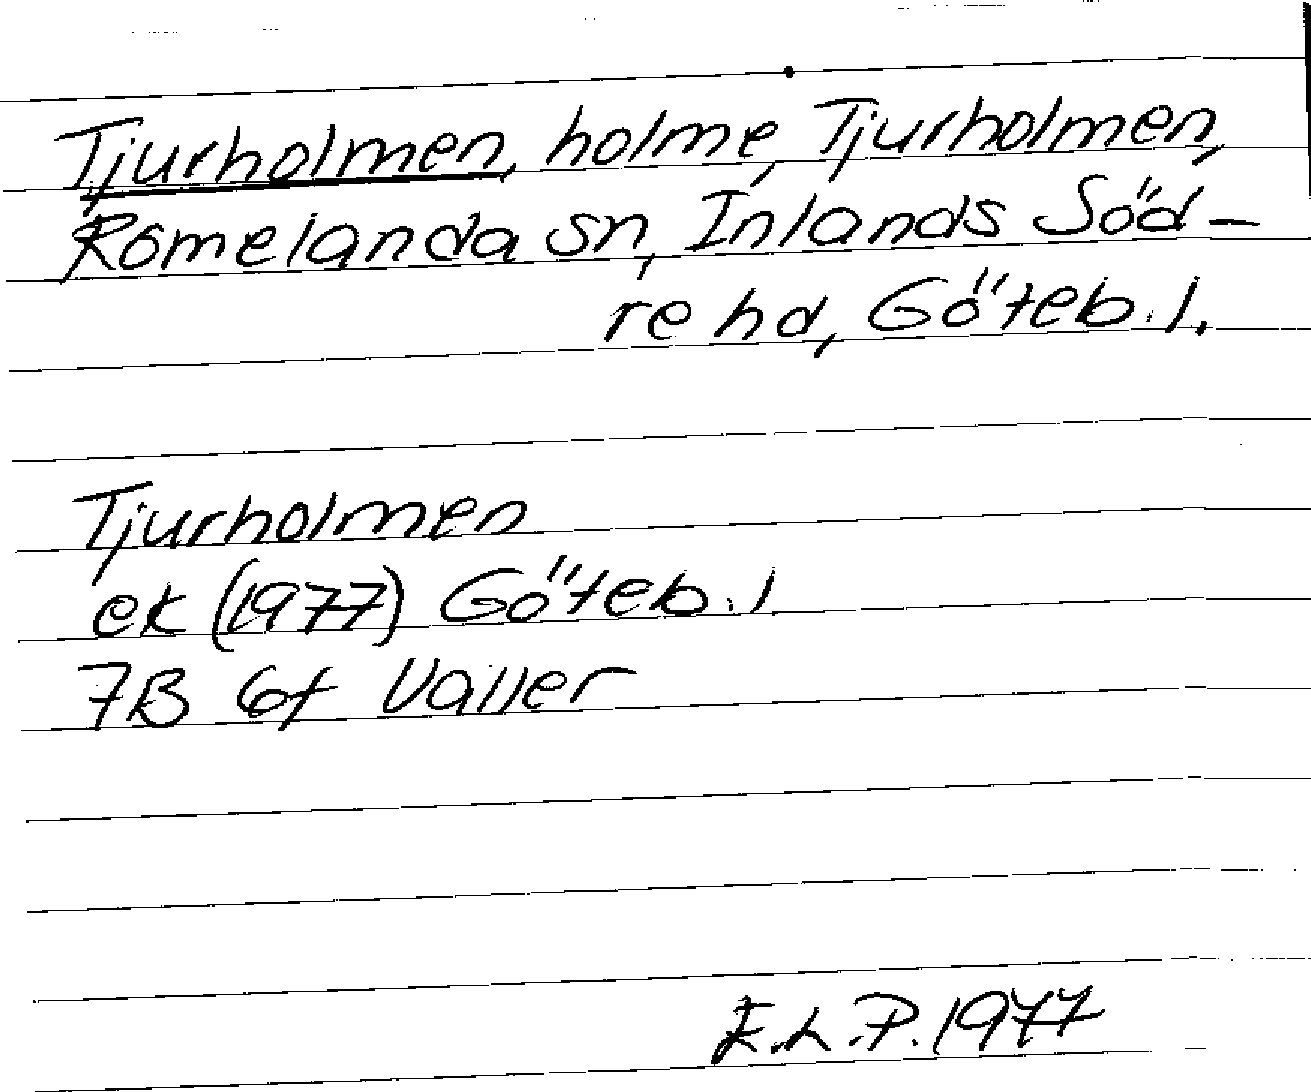 Tjurholmen, holme, Tjurholmen,
Romelanda sn, Inlands Söd-
re hd, Göteb. l.
Tjurholmen
ek (1977) Göteb. l
7B 6f Valler
E.L.P. 1977